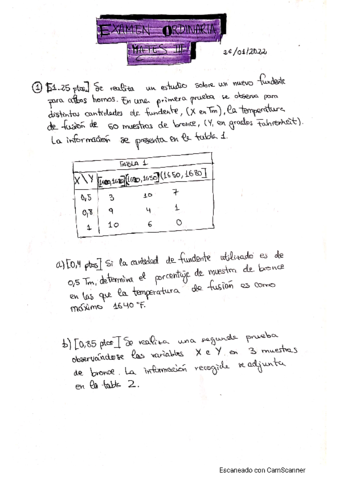 EXAMEN ORDINARIA
MATES III
26/01/2022
① [1.25 ptos] Se realiza un estudio sobre un nuevo fundente
para altos hornos. En una primera prueba se observa para
distintas cantidades de fundente, (X en Tm), la temperatura
de fusión de 50 muestras de bronce, (Y, en grados Fahrenheit).
La información se presenta en la tabla 1.
TABLA 1
X\Y (1650, 1680]
0,5 3 10 7
0,8 9 4 1
1 10 6 0
a) [0,4 ptos] Si la cantidad de fundente utilizado es de
0,5 Tm, determina el porcentaje de muestra de bronce
en las que la temperatura de fusión es como
máximo 1640 °F.
b) [0,85 ptos] Se realiza una segunda prueba
observándose las variables X e Y en 3 muestras
de bronce. La información recogida se adjunta
en la tabla 2.
Escaneado con CamScanner